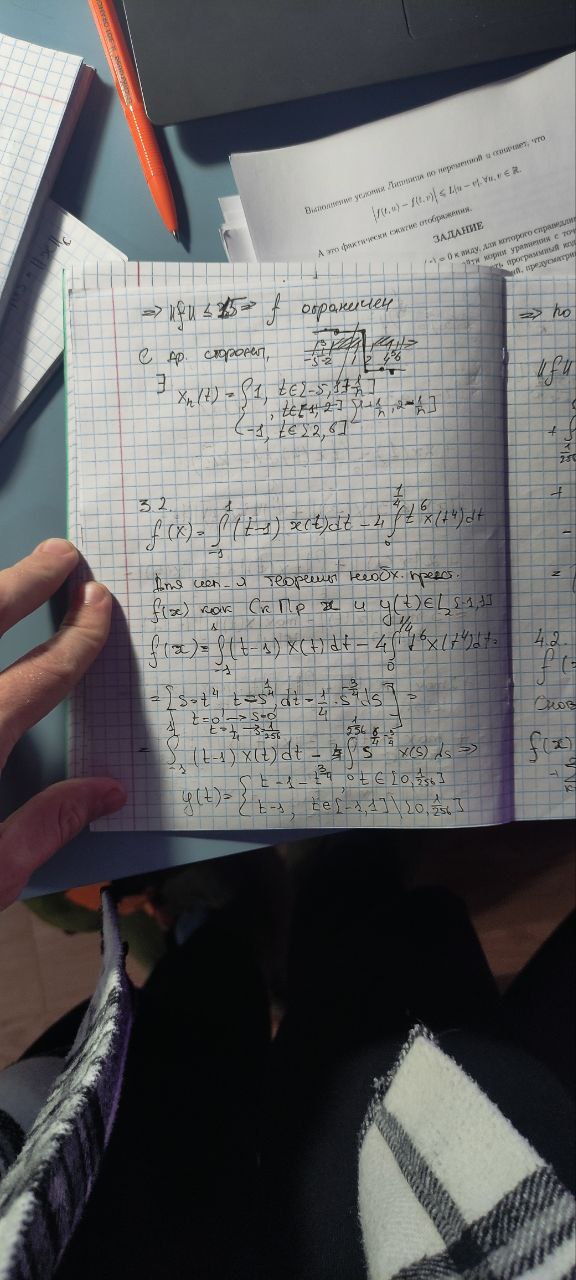 Выполнение условия Липшица по переменной u означает, что
|f(t, u) − f(t, v)| ⩽ L|u − v|, ∀u, v ∈ ℝ.
А это фактически сжатие отображения.
ЗАДАНИЕ
= 0 к виду, для которого справедли
йти корни уравнения с точ
программный код
й, предусматри
⇒ f ограничен
С др. стороны,
∃ xₙ(t) = { 1, t∈[-5, 1
-1, t∈[2, 6]
3.2.
f(x) = ∫₋₁¹ (t-1) x(t)dt - 4 ∫₀^{1/4} t⁶ x(t⁴)dt
Для исп-я теоремы необх. предст.
f(x) как Ск Пр x и y(t) ∈ L₂[-1,1]
f(x) = ∫₋₁¹ (t-1) x(t) dt - 4 ∫₀^{1/4} t⁶ x(t⁴)dt =
= [s=t⁴ t=s^{1/4}, dt = 1/4 · s^{-3/4} ds
t=0 → s=0
t=1/4 → s=1/256 ] =
= ∫₋₁¹ (t-1) x(t) dt - ∫₀^{1/256} s^{6/4 - 3/4} x(s) ds ⇒
y(t) = { t-1-t^{3/4}, t∈[0, 1/256]
t-1, t∈[-1,1] \ [0, 1/256]
⇒ по
4.2.
f(x)